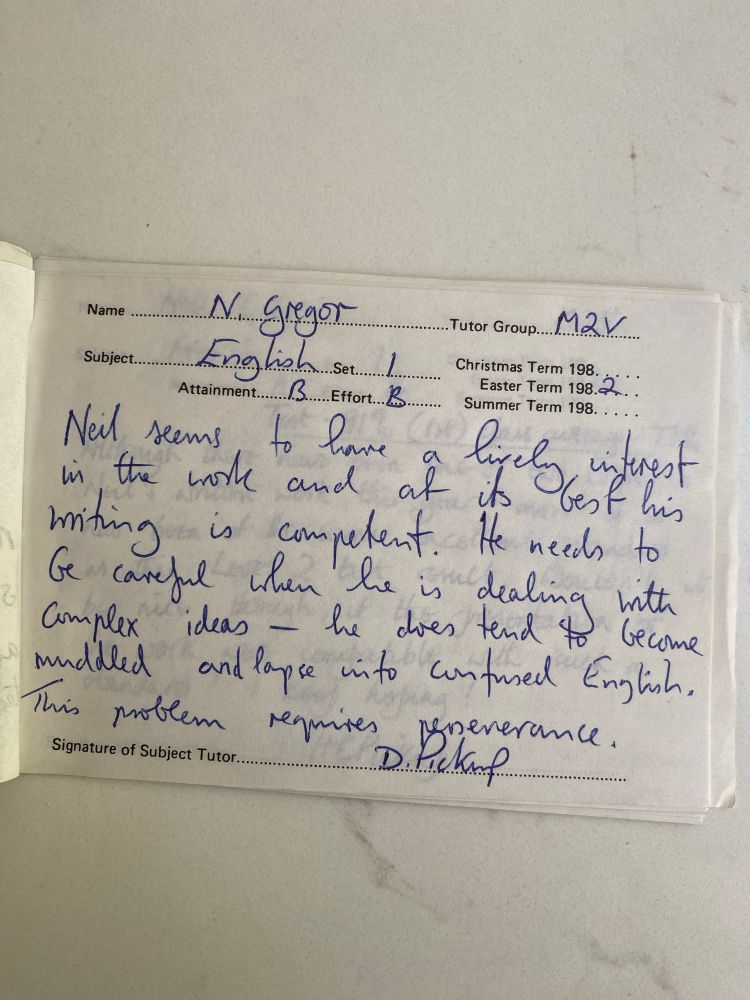 Name ........ N. Gregor ........ Tutor Group.... M2V ....
Subject........ English .... Set.... 1 ........ Christmas Term 198. . . . .
Attainment...... B ...... Effort.... B ...... Easter Term 198. 2 . .
Summer Term 198. . . . .
Neil seems to have a lively interest
in the work and at its best his
writing is competent. He needs to
be careful when he is dealing with
complex ideas – he does tend to become
muddled and lapse into confused English.
This problem requires perseverance.
Signature of Subject Tutor........ D. Pickup ........